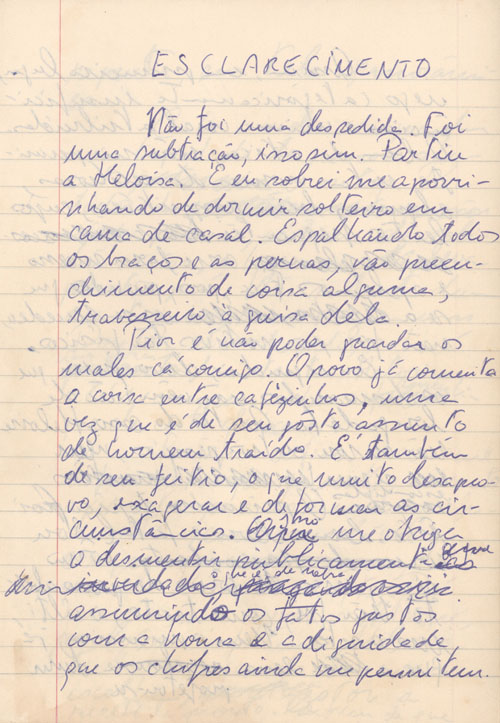 ESCLARECIMENTO
Não foi uma despedida. Foi
uma subtração, isso sim. Partiu
a Heloisa. E eu sobrei me apourri-
nhando de dormir solteiro em
cama de casal. Espalhando todos
os braços e as pernas, vão preen-
chimento de coisa alguma,
travesseiro à guisa dela.
Pior é não poder guardar os
males cá comigo. O povo já comenta
a coisa entre cafèzinhos, uma
vez que é de seu gôsto assunto
de homem traído. É também
de seu feitio, o que muito desapro-
vo, exagerar e deformar as cir-
cunstâncias. me obriga
a desmentir publicamente
inverdades
assumindo os fatos gastos
com a honra e a dignidade,
que os chifres ainda me permitem.